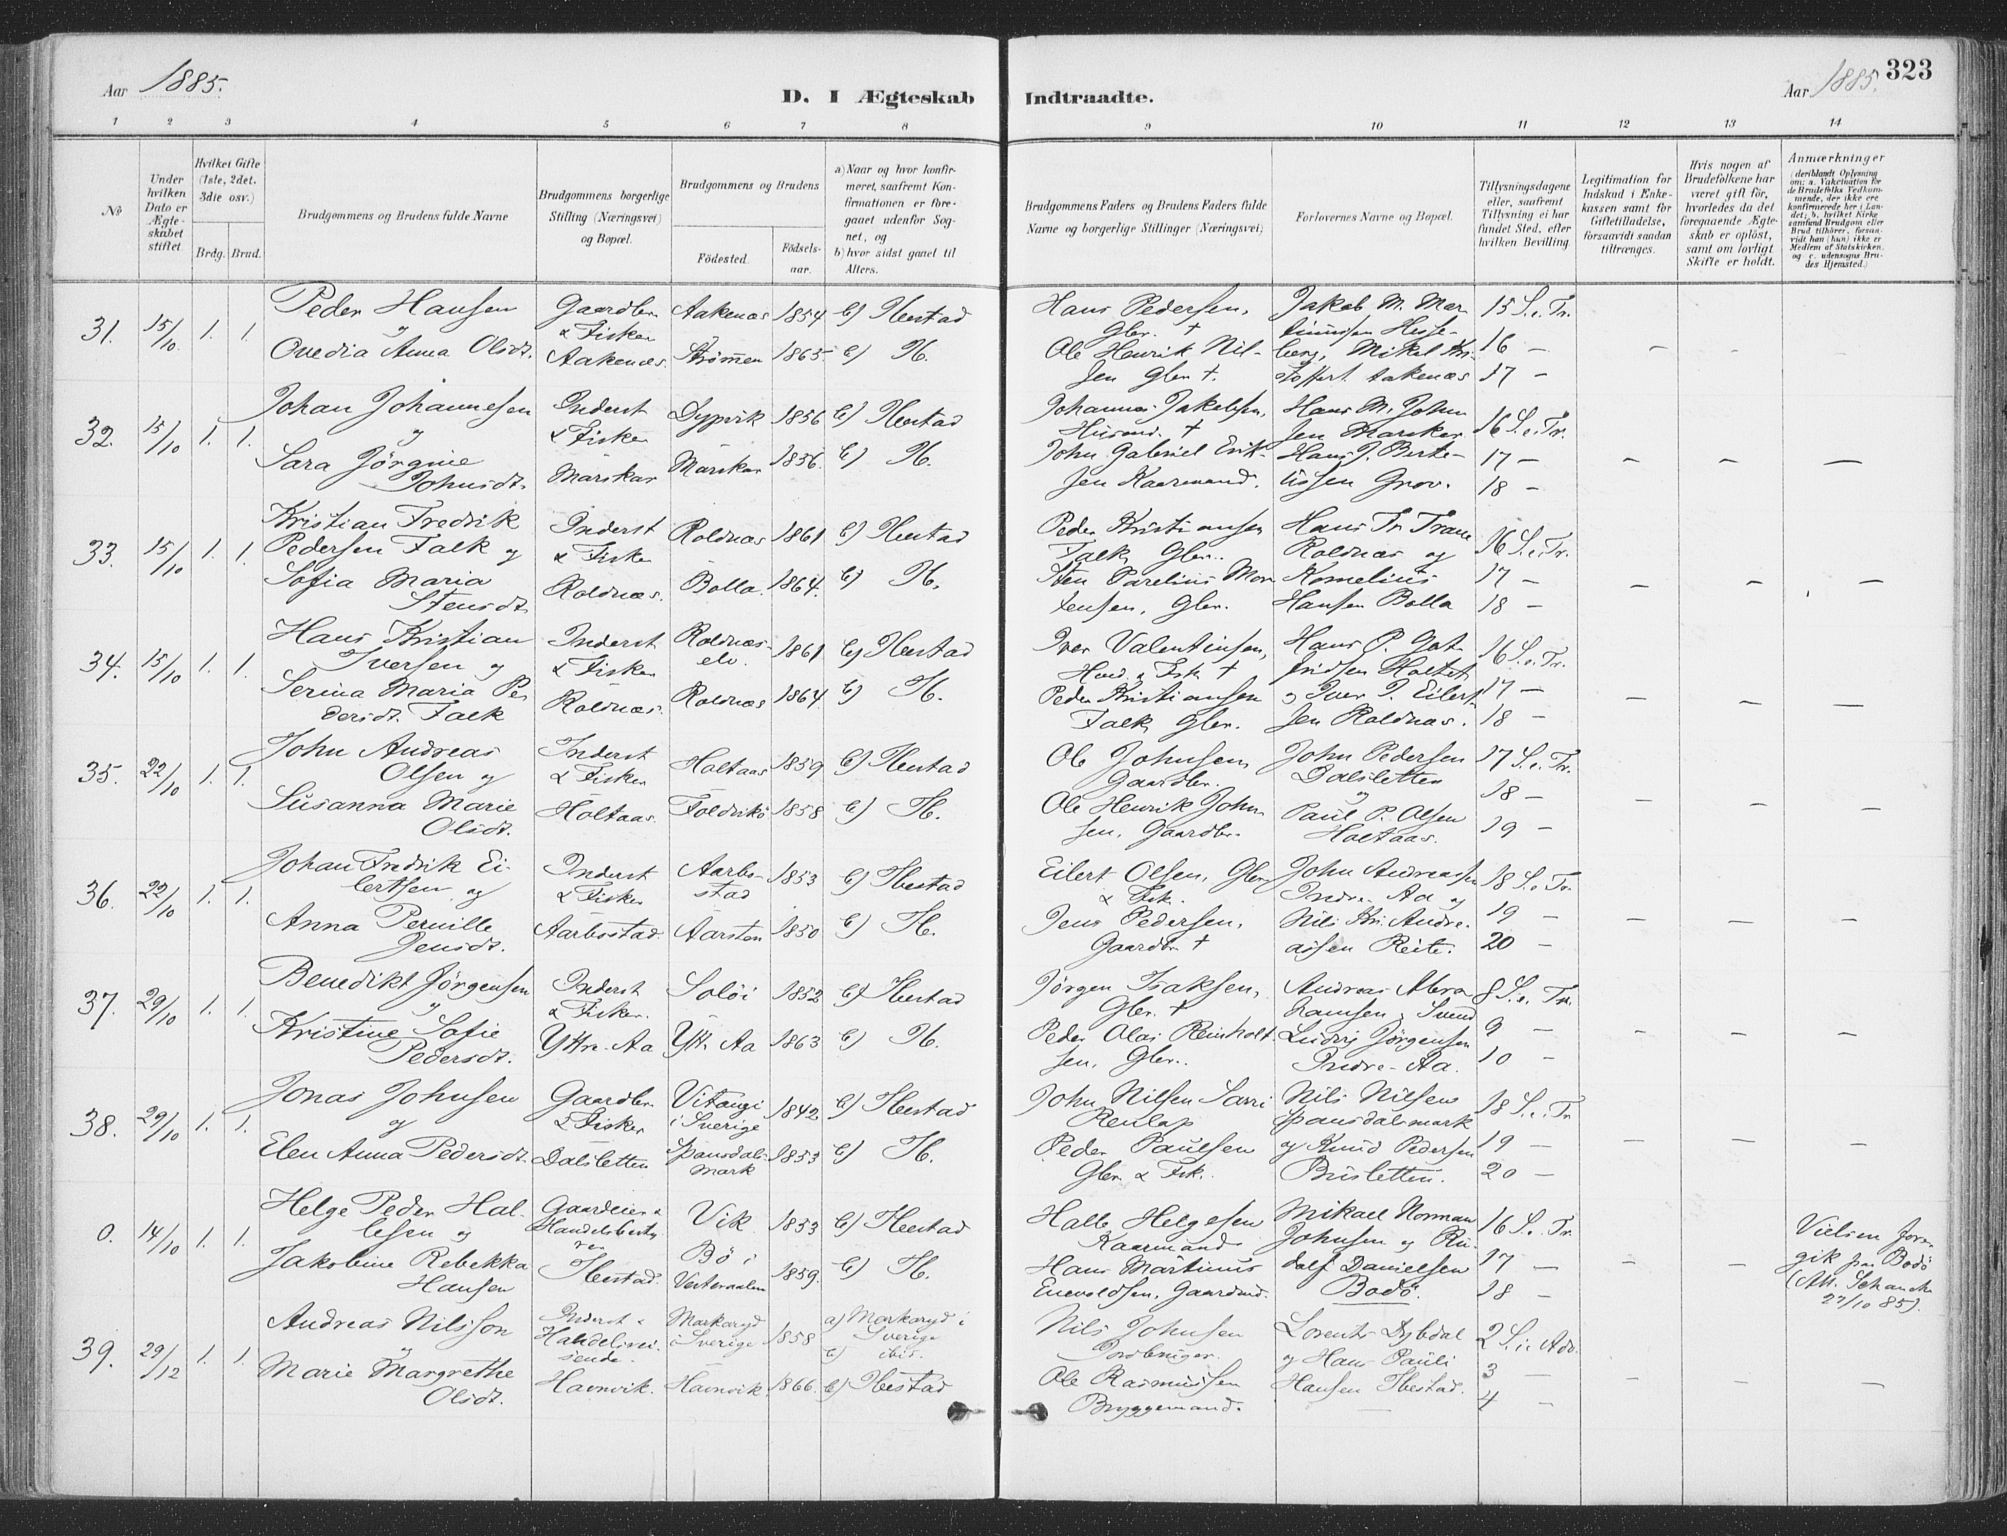 Aar 1885.
D. I Ægteskab Indtraadte.
Aar 1885. 323
1 2 3 4 5 6 7 8 9 10 11 12 13 14
№
Under hvilken Dato er Ægteskabet stiftet.
Hvilket Gifte (1ste, 2det. 3die osv.)
Brdg. Brud.
Brudgommens og Brudens fulde Navne
Brudgommens borgerlige Stilling (Næringsvei) og Bopæl.
Brudgommens og Brudens
Fødested. Fødselsaar.
a) Naar og hvor konfirmeret, saafremt Konfirmationen er foregaaet udenfor Sognet, og
b) hvor sidst gaaet til Alters.
Brudgommens Faders og Brudens Faders fulde Navne og borgerlige Stillinger (Næringsvei)
Forlovernes Navne og Bopæl.
Tillysningsdagene eller, saafremt Tillysning ei har fundet Sted, efter hvilken Bevilling
Legitimation for Indskud i Enkekassen samt for Giftetilladelse, forsaavidt saadan tiltrænges.
Hvis nogen af Brudefolkene har været gift før, hvorledes da det foregaaende Ægteskab er opløst, samt om lovligt Skifte er holdt.
Anmærkninger (deriblandt Oplysning om: a. Vakcination for de Brudefolks Vedkommende, der ikke ere konfirmerede her i Landet; b. hvilket Kirkesamfund Brudgom eller Brud tilhører, forsaavidt han (hun) ikke er Medlem af Statskirken, og c. udensogns Brudes Hjemsted.)
31. 15/10. 1. 1. Peder Hansen Gaardbr. Aakenæs 1854 b) Ibestad Hans Pedersen, Jakob M. Mar 15 S. e. Tr.
y & Fisker Gbr. † tinussen Hesse-
Ovedia Anna Olsdt. Aakenæs. Strømmen 1865. b) Ib. Ole Henrik Nil- berg, Mikal Kri- 16 —
sen Gbr †. stoffers. Aakenæs 17 —
32. 15/10 1. 1. Johan Johannesen Inderst Dypvik 1856 b) Ibestad Johannes Jakobsen, Hans M. John 16 S. e. Tr.
y & Fisker Husmd. † sen Marsker
Sara Jørgine Marskar Marskar 1856. b) Ib. John Gabriel Erik- Hans J. Berte- 17 —
Johnsdt. sen Kaarmand. ussen Grov. 18 —
33. 15/10 1. 1. Kristian Fredrik Inderst Roldnæs 1861 b) Ibestad Peder Kristiansen Hans Fr. Trane 16 S. e. Tr.
Pedersen Falk og & Fisker Falk, Gbr. Roldnæs og
Sofia Maria Roldnæs. Bolla. 1864. b) Ib. Sten Parelius Mor Kornelius 17 —
Stensdt. tensen, Gbr. Hansen Bolla 18 —
34. 15/10 1. 1. Hans Kristian Inderst Roldnæs- 1861 b) Ibestad Iver Valentinsen, Hans P. Got 16 S. e. Tr.
Iversen og & Fisker elv. Hmd. & Fisk † fridsen Holtet
Serina Maria Pe Roldnæs. Roldnæs 1864 b) Ib. Peder Kristiansen og Iver P. Eilert 17 —
dersdt. Falk Falk, Gbr. sen Roldnæs. 18 —
35. 22/10 1. 1. John Andreas Inderst Holtaas 1859 b) Ibestad Ole Johnsen, John Pedersen 17 S. e. Tr.
Olsen og & Fisker Gaardbr. Dalsletten
Susanna Marie Holtaas. Foldvik 1858 b) Ib. Ole Henrik John og 18 —
Olsdt. sen, Gaardbr. Paul P. Olsen Holtaas. 19 —
36. 22/10 1. 1. Johan Fredrik Ei- Inderst Aarbo- 1853 b) Ibestad Eilert Olsen, Gbr, John Andreassen 18 S. e. Tr
lertsen og & Fisker stad & Fisk. Indre-Aa og
Anna Pernille Aarbostad. Aarsten 1850 b) Ib. Jens Pedersen, Nils Kr. Andre- 19 —
Jensdt. Gaardbr † assen Reite. 20 —
37. 29/10 1. 1. Benedikt Jørgensen Inderst Soløi 1852 b) Ibestad Jørgen Isaksen, Andreas Abra 8 S. e. Tr.
y & Fisker. Gbr. † hamsen, Svend
Kristine Sofie Yttre-Aa Ytt. Aa 1863 b) Ib. Peder Olai Reinholt Ludvig Jørgensen 9 —
Pedersdt. sen, Gbr. Indre-Aa. 10 —
38. 29/10 1. 1. Jonas Johnsen Gaardbr. Vitangi 1842 b) Ibestad John Nilsen Sarri Nils Nilsen 18 S. e. Tr
og & Fisker i Sverige Renlap Spansdalsmark
Elen Anna Pedersdt. Dalsletten Spansdals- 1853 b) Ib. Peder Paulsen og Knud Pedersen 19 —
mark Gbr & Fisk. Brusletten. 20 —
0. 14/10 1. 1. Helge Peder Hal- Gaardeier & Vik 1853 b) Ibestad Halle Helgesen Mikael Norman 16 S. e. Tr. Vielsen fore-
lesen og Handelsbesty Kaarmand Johnsen og Ru- gik paa Bodø
Jakobine Rebekka rer Bø i 1859. b) Ib. Hans Martinus dolf Danielsen 17 — (Att. Schancke
Hansen Ibestad. Vesteraalen Enevoldsen, Gaardmd. Bodø. 18 — 27/10 85).
39. 29/12 1. 1. Andreas Nilsson Inderst & Markaryd 1858 a) Markaryd i Nils Johnsen Lorents Dybdal 2 S. i Adv.
y Handelsrei- i Sverige Sverige Jordbruger. og Hans Pauli
sende. b) ibid.
Marie Margrethe Havnvik. Havnvik. 1866. b) Ibestad Ole Rasmussen Hansen Ibestad. 3 —
Olsdt. Bryggemand. 4 —